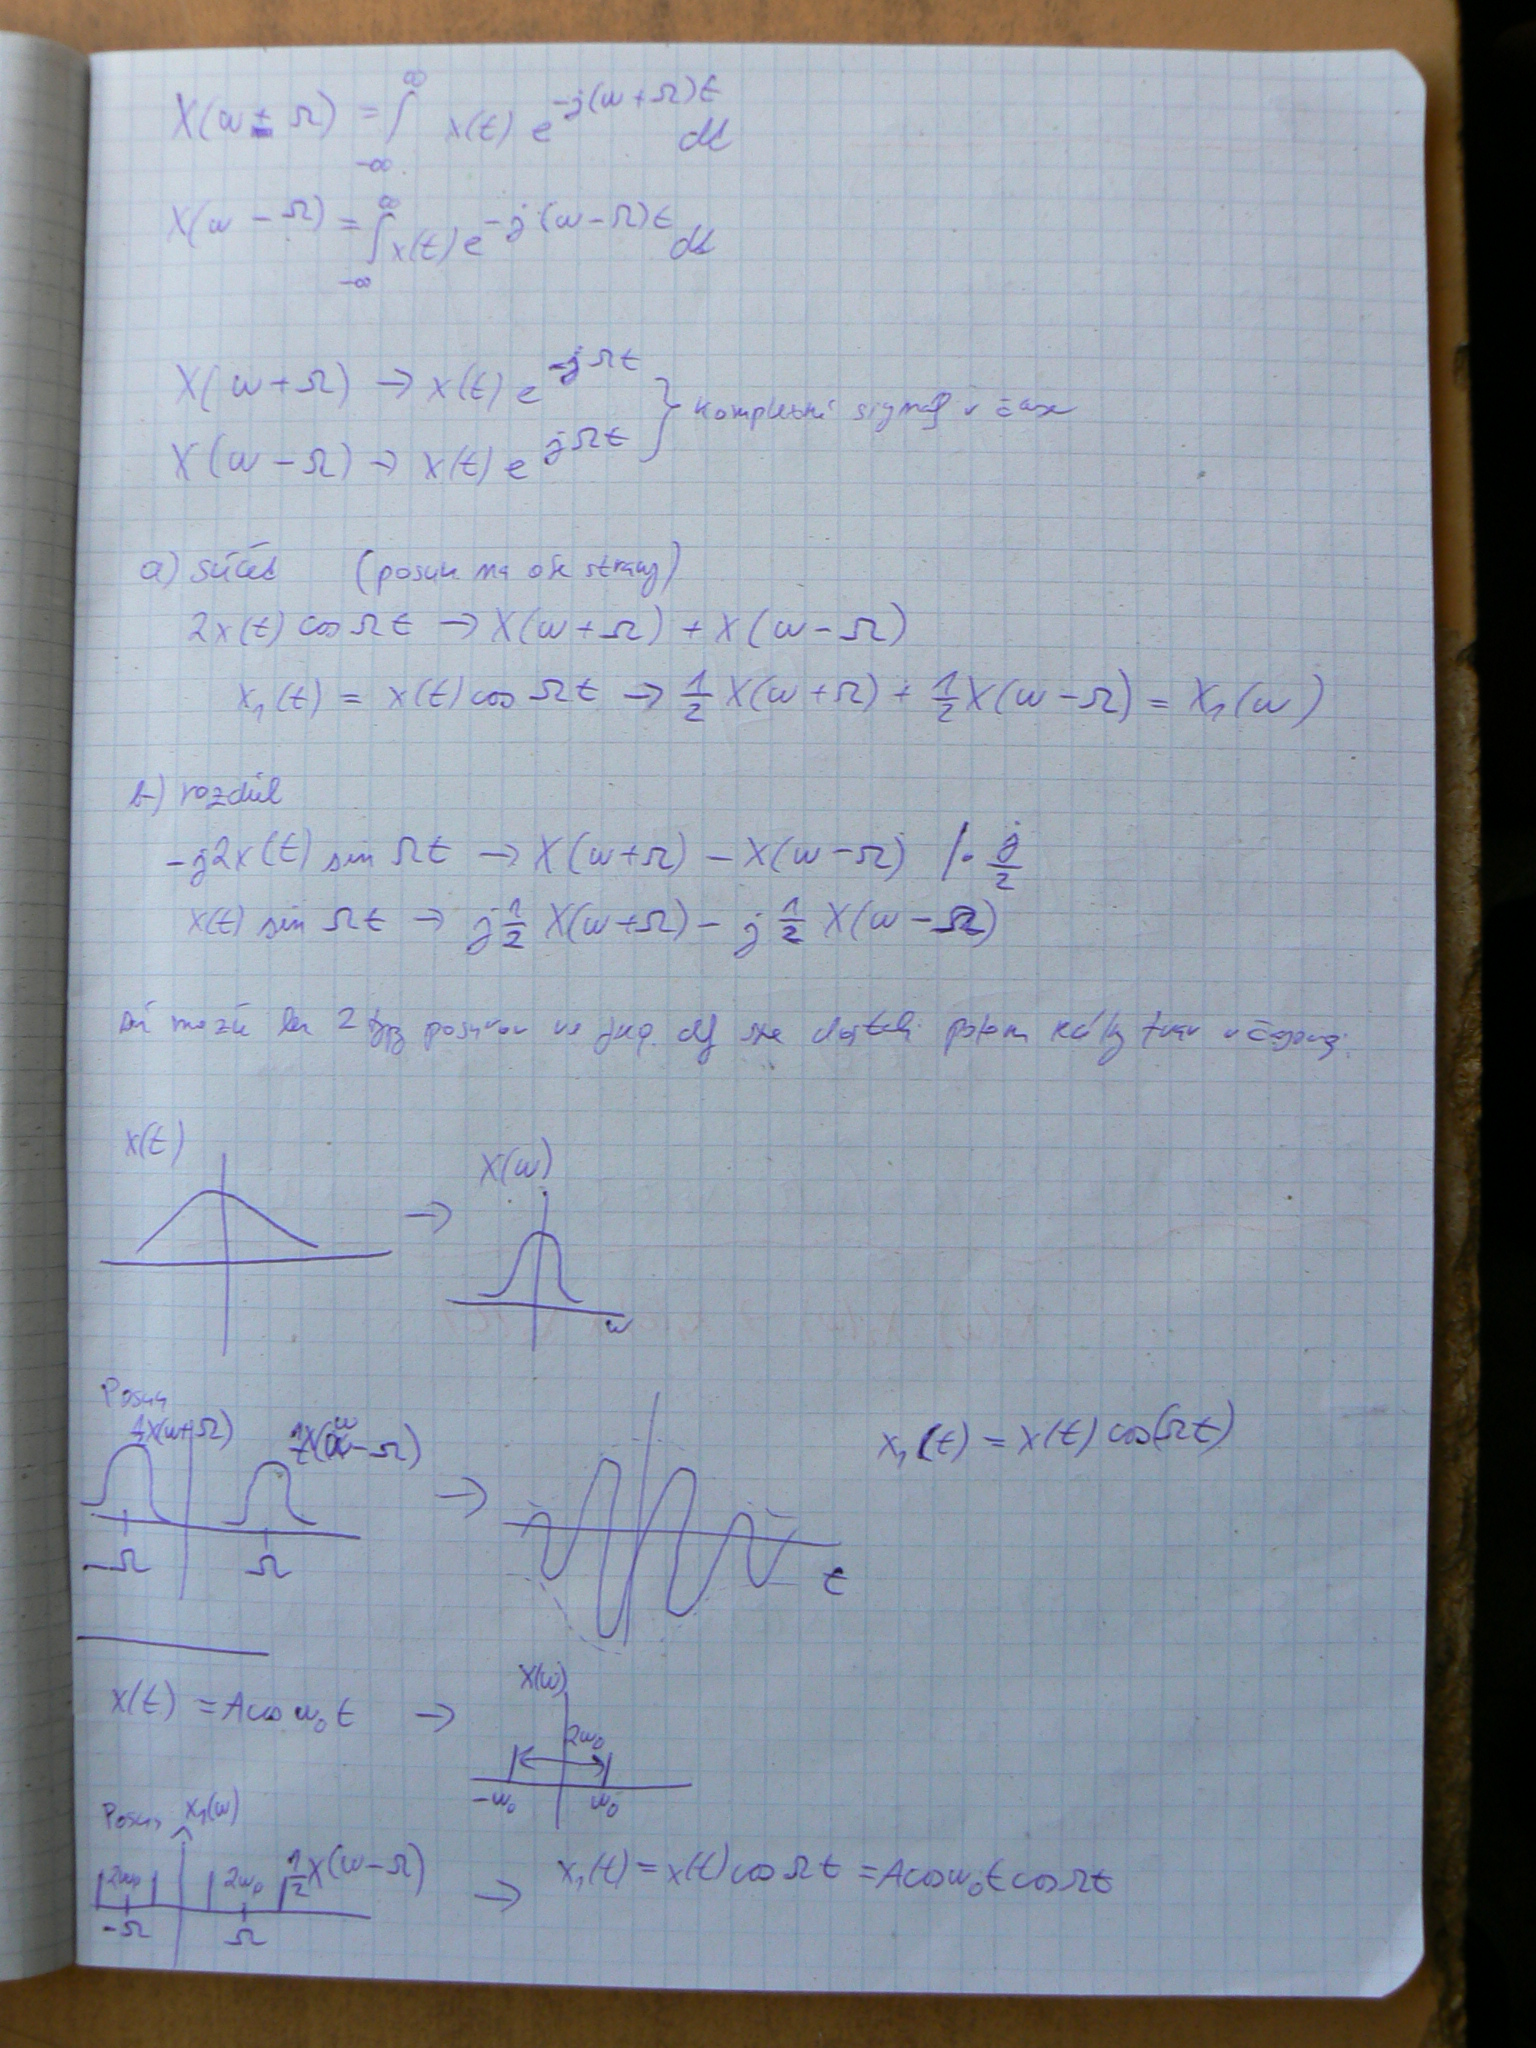 X(ω + Ω) = ∫_{-∞}^{∞} x(t) e^{-j(ω+Ω)t} dt
X(ω - Ω) = ∫_{-∞}^{∞} x(t) e^{-j(ω-Ω)t} dt
X(ω+Ω) → x(t) e^{-jΩt}
X(ω-Ω) → x(t) e^{jΩt} } komplexní signál v čase
a) súčet (posun na obe strany)
2x(t) cos Ωt → X(ω+Ω) + X(ω-Ω)
x₁(t) = x(t) cos Ωt → ½ X(ω+Ω) + ½ X(ω-Ω) = X₁(ω)
b) rozdíl
-j2x(t) sin Ωt → X(ω+Ω) - X(ω-Ω) /· j/2
x(t) sin Ωt → j½ X(ω+Ω) - j½ X(ω-Ω)
2 typy posunov potom v
x(t)
→
X(ω)
ω
Posun
½X(ω+Ω)
½X(ω-Ω)
-Ω Ω
→
t
x₁(t) = x(t) cos(Ωt)
x(t) = A cos ω₀t →
X(ω)
2ω₀
-ω₀ ω₀
Posun X₁(ω)
2ω₀ 2ω₀ ½X(ω-Ω)
-Ω Ω
→ x₁(t) = x(t) cos Ωt = A cos ω₀t cos Ωt